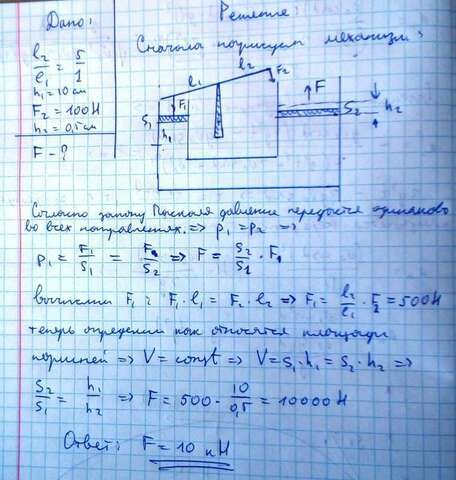 Дано:
l₂/l₁ = 5/1
h₁ = 10 см
F₂ = 100 Н
h₂ = 0,5 см
F - ?
Решение:
Сначала нарисуем механизм:
l₁ l₂ F₂
F₁ F
S₁ S₂ h₂
h₁
Согласно закону Паскаля давление передаётся одинаково
во всех направлениях. => p₁ = p₂ =>
p₁ = F₁/S₁ = F/S₂ => F = S₂/S₁ · F₁
вычислим F₁: F₁ · l₁ = F₂ · l₂ => F₁ = l₂/l₁ · F₂ = 500 Н
теперь определим как относятся площади
поршней => V = const => V = S₁ · h₁ = S₂ · h₂ =>
S₂/S₁ = h₁/h₂ => F = 500 · 10/0,5 = 10000 Н
Ответ: F = 10 кН